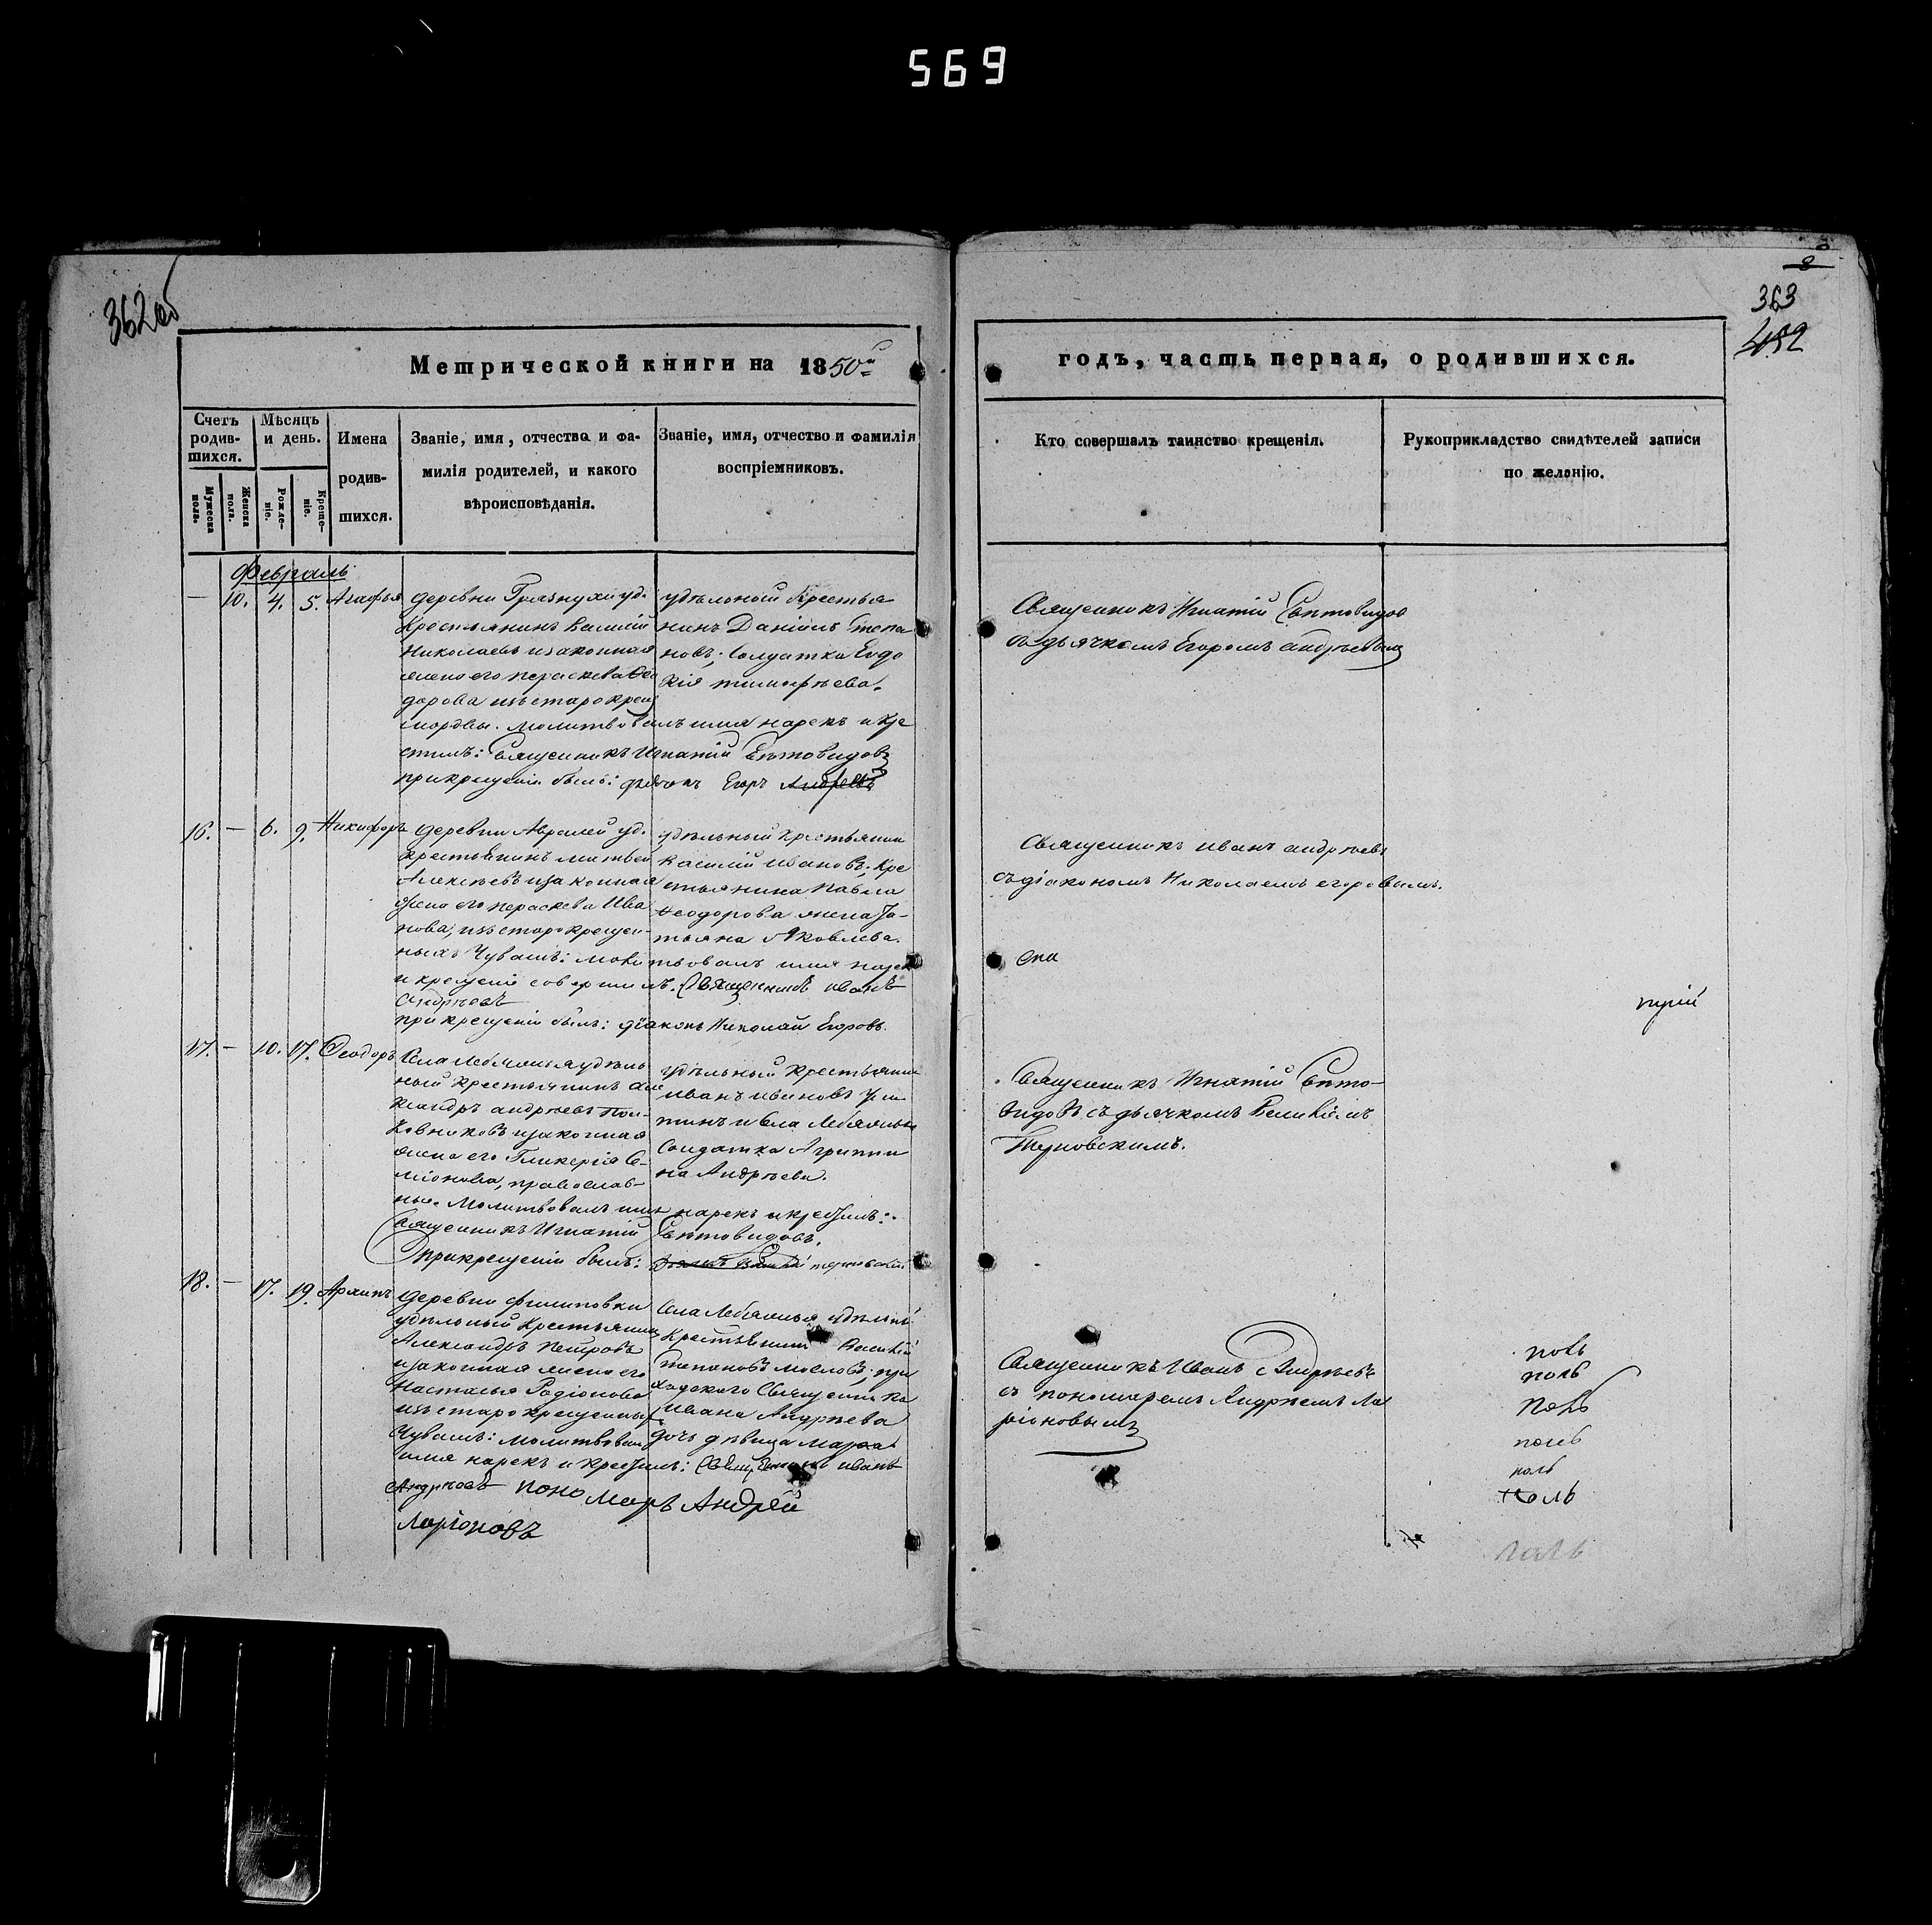 569
362об
Метрической книги на 1850й
Счетъ родив-шихся.
Мѣсяцъ и день.
Имена родив-шихся.
Званіе, имя, отчество и фа-
милія родителей, и какого
вѣроисповѣданія.
Званіе, имя, отчество и фамилія
воспріемниковъ.
Мужеска пола.
Женска пола.
Рожде-ніе.
Креще-ніе.
Февраль
— 10. 4. 5. Агафья
деревни Грязнухи уд.
Крестьянинъ Василій
Николаевъ и законная
жена его Параскева Ѳео
дорова изъ старокрещ
мордвы. Молитвовалъ имя нарекъ и кре
стилъ: Священникъ Игнатій Свѣтовидовъ
при крещеніи былъ: дьячокъ Егоръ Андреевъ
удѣльной Крестья
нинъ Даніилъ Степа
новъ; солдатка Евдо
кія тимофѣева.
16. — 6. 9. Никифоръ
деревни Авралей уд.
крестьянинъ матвей
Алексѣевъ и законная
жена его параскева Ива
нова, изъ старокрещен-
ныхъ Чувашъ: молитвовалъ имя нарекъ
и крещеніе совершилъ. Священникъ иванъ
Андреевъ
при крещеніи былъ: діаконъ Николай Егоровъ.
удѣльный крестьянин
василій ивановъ; Кре
стьянина Павла
Ѳеодорова жена Та-
тьяна Яковлева.
17. — 10. 17. Ѳеодоръ
Села Лебяжья удѣль
ный крестьянинъ Але
ксандръ андрѣевъ Пол-
ковниковъ и законная
жена его Гликерія Се-
міонова, православ-
ные. Молитвовалъ имя нарекъ и крестилъ:
Священникъ Игнатій Свѣтовидовъ.
При крещеніи былъ: дьячекъ Василій терновскій
удѣльный Крестьянин
иванъ ивановъ
тинъ и села Лебяжья
Солдатка Агриппи
на Андрѣева.
18. — 17. 19. Архипъ
деревни филиповки
удѣльный Крестьянинъ
Александръ Петровъ
и законная жена его
Настасья Родіонова
изъ старокрещенныхъ
Чувашъ: молитвовалъ
имя нарекъ и крестилъ: Священникъ иванъ
Андреевъ пономарь Андрей
Ларіоновъ
Села Лебяжья удѣльн
Крестьянинъ Василій
степановъ масловъ; при
ходскаго Священника
ивана Андрѣева
дочь дѣвица марѳа
годъ, часть первая, о родившихся.
363
482
Кто совершалъ таинство крещенія.
Рукоприкладство свидѣтелей записи
по желанію.
Священникъ Игнатій Свѣтовидов
съ дьячкомъ Егоромъ андреевымъ
Священникъ иванъ андрѣевъ
съ діакономъ Николаемъ егоровымъ.
Священникъ Игнатій Свѣто-
видовъ съ дьячкомъ Василіемъ
Терновскимъ.
Священникъ Иванъ Андрѣевъ
съ пономаремъ Андрѣемъ Ла
ріоновымъ